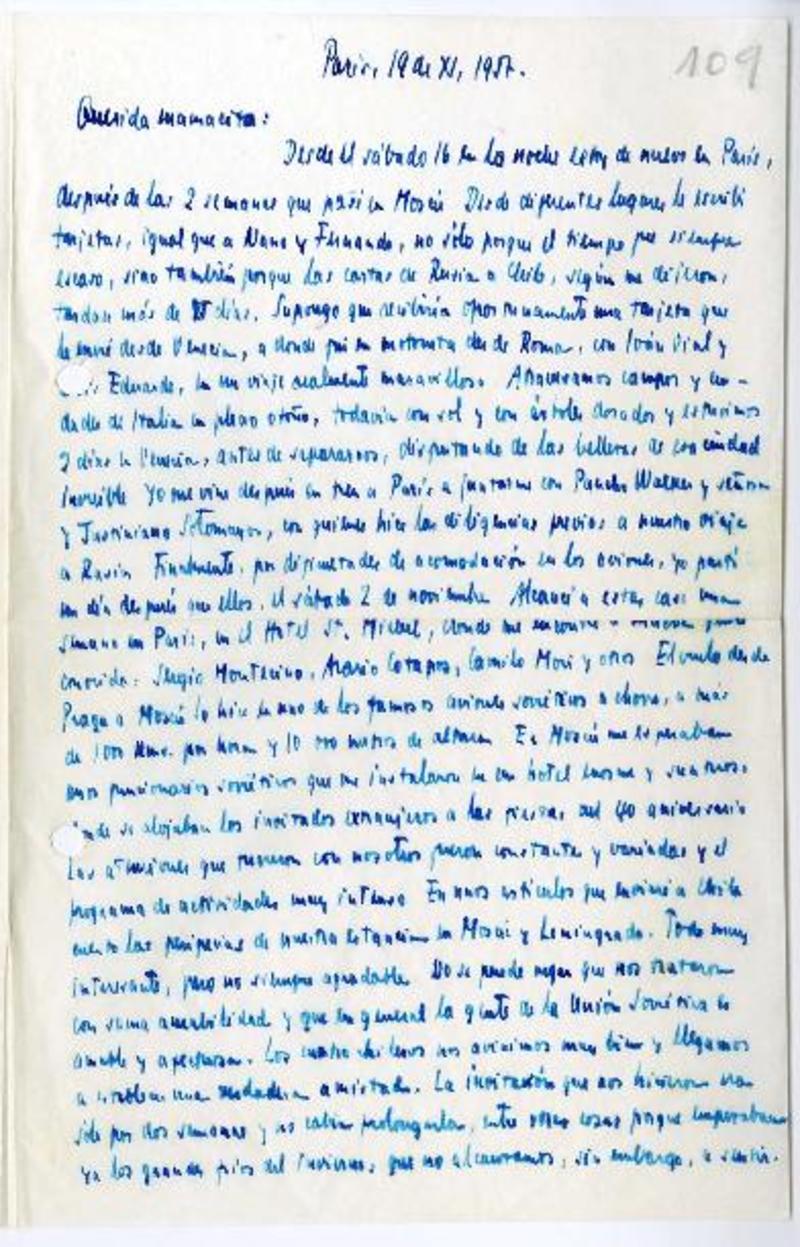 109
París, 19 de XI, 1957.
Querida mamacita:
Desde el sábado 16 en la noche estoy de nuevo en París,
después de las 2 semanas que pasé en Moscú Desde diferentes lugares le escribí
tarjetas, igual que a Nana y Fernando, no sólo porque el tiempo fue siempre
escaso, sino también porque las cartas de Rusia a Chile, según me dijeron,
tardan más de 15 días. Supongo que recibiría oportunamente una tarjeta que
le envié desde Venecia, a donde fui en motoneta desde Roma, con Iván Vial y
Eduardo, en un viaje realmente maravilloso Atravesamos campos y ciu-
dades de Italia en pleno otoño, todavía con sol y con árboles dorados y estuvimos
2 días en Venecia, antes de separarnos, disfrutando de las bellezas de esa ciudad
increíble Yo me vine después en tren a París a juntarme con Pancho Walker y señora
y Justiniano Sotomayor, con quienes hice las diligencias previas a nuestro viaje
a Rusia Finalmente, por dificultades de acomodación en los aviones, yo partí
un día después que ellos, el sábado 2 de noviembre Alcancé a estar casi una
semana en París, en el Hotel St. Michel, donde me encontré a mucha gente
conocida: Sergio Montecino, Acario Cotapos, Camilo Mori y otros El vuelo desde
Praga a Moscú lo hice en uno de los famosos aviones soviéticos a chorro, a más
de 1000 kms. por hora y 10 000 metros de altura En Moscú me esperaban
unos funcionarios soviéticos que me instalaron en un hotel enorme y suntuoso
donde se alojaban los invitados extranjeros a las fiestas del 40 aniversario
Las atenciones que tuvieron con nosotros fueron constantes y variadas y el
programa de actividades muy intenso En unos artículos que enviaré a Chile
cuento las peripecias de nuestra estancia en Moscú y Leningrado. Todo muy
interesante, pero no siempre agradable No se puede negar que nos trataron
con suma amabilidad y que en general la gente de la Unión Soviética es
amable y afectuosa. Los cuatro chilenos nos avinimos muy bien y llegamos
a establecer una verdadera amistad. La invitación que nos hicieron era
sólo por dos semanas y no cabía prolongarla, entre otras cosas porque empezaban
ya los grandes fríos del invierno, que no alcanzamos, sin embargo, a sentir.